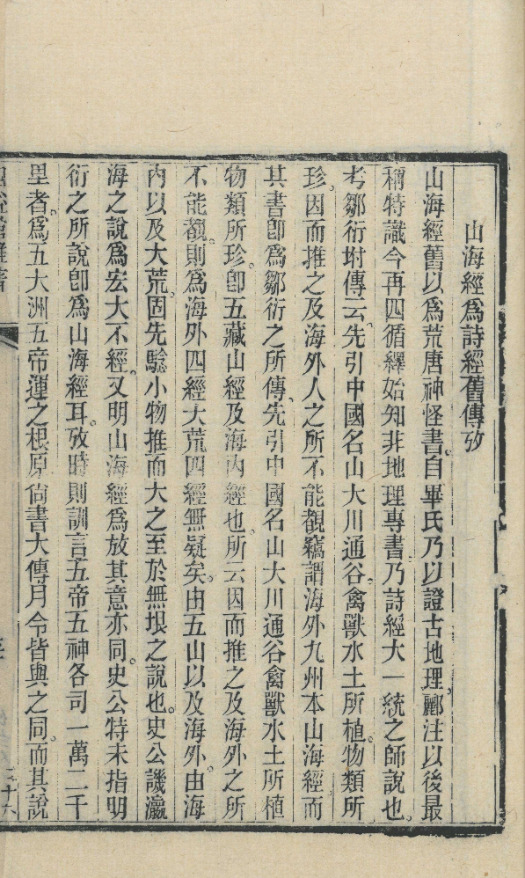 山海經爲詩經舊傳攷
山海經舊以爲荒唐神怪書。自畢氏乃以證古地理。酈注以後最
稱特識今再四循繹始知非地理專書乃詩經大一統之師說也。
考鄒衍坿傳云。先引中國名山大川通谷。禽獸水土所植。物類所
珍。因而推之及海外人之所不能覩竊謂海外九州本山海經而
其書卽爲鄒衍之所傳。先引中國名山大川通谷禽獸水土所植
物類所珍。卽五藏山經及海內經也。所云因而推之及海外之所
不能覩。則爲海外四經大荒四經無疑矣。由五山以及海外。由海
內以及大荒。固先驗小物推而大之至於無垠之說也。史公譏瀛
海之說爲宏大不經。又明山海經爲放其意亦同。史公特未指明
衍之所說卽爲山海經耳。攷時則訓言五帝五神各司一萬二千
里者。爲五大洲五帝運之根原。尙書大傳月令皆與之同。而其說